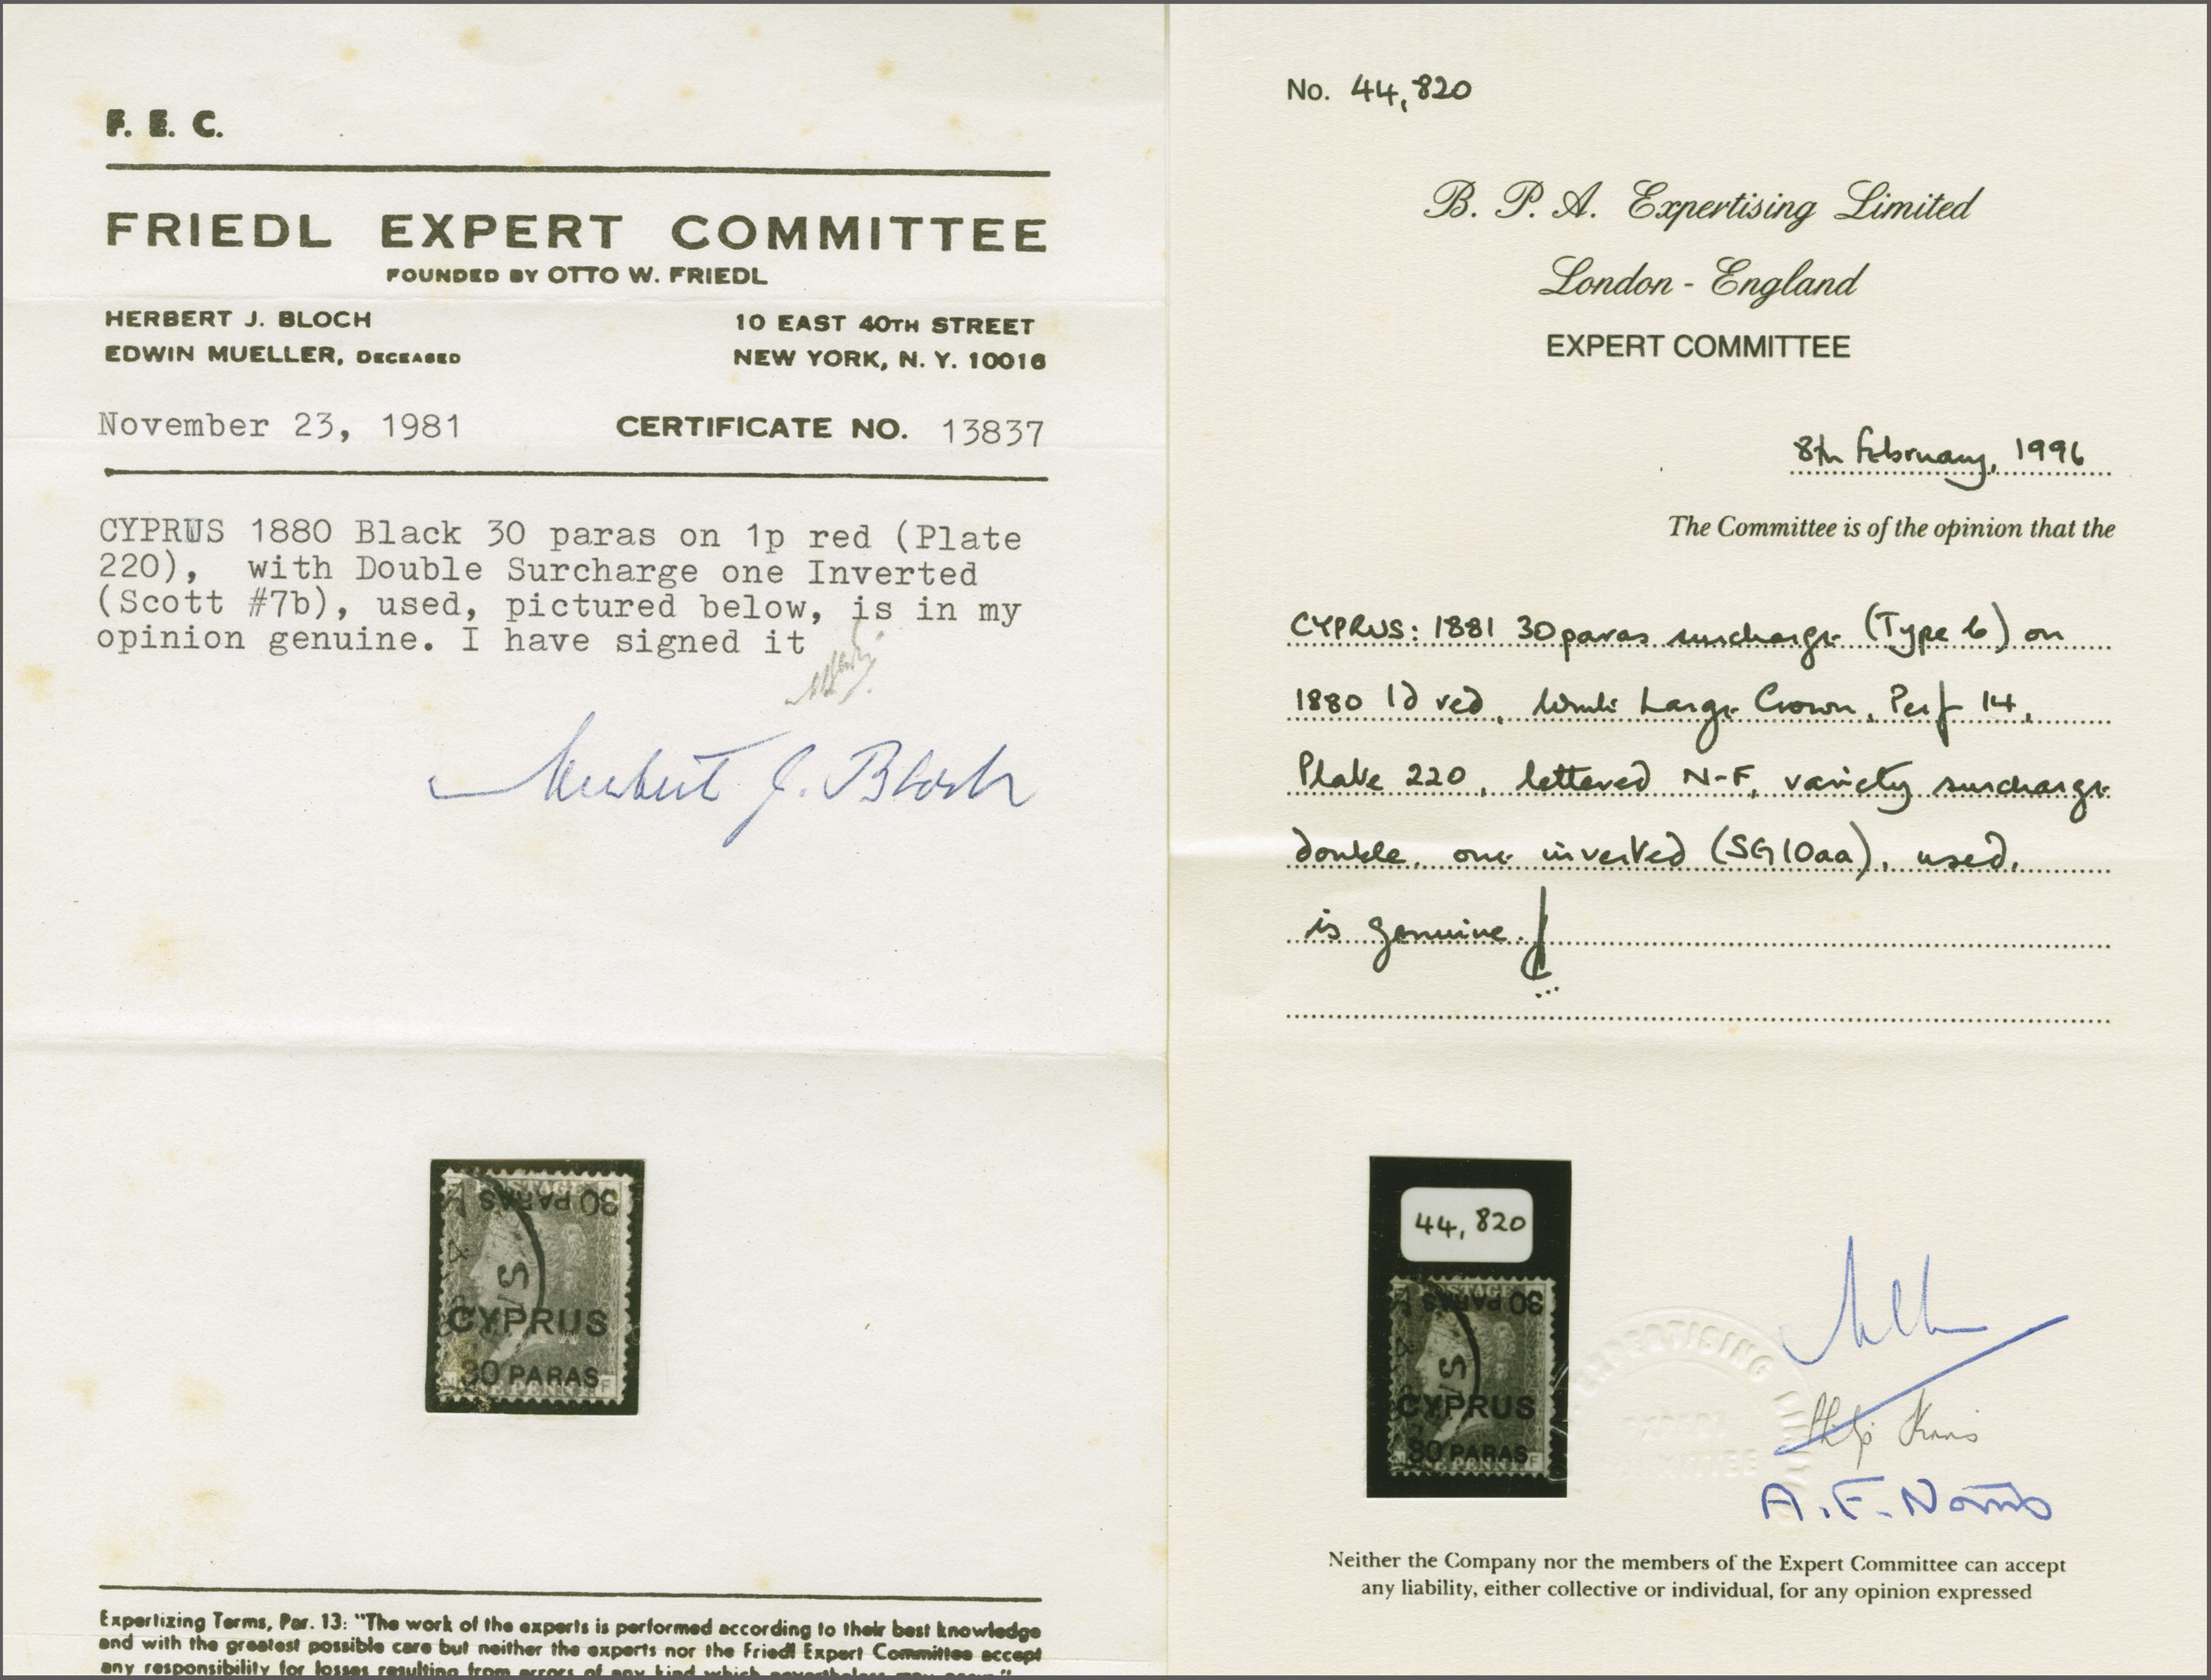 F. E. C.
FRIEDL EXPERT COMMITTEE
FOUNDED BY OTTO W. FRIEDL
HERBERT J. BLOCH
EDWIN MUELLER, DECEASED
10 EAST 40TH STREET
NEW YORK, N. Y. 10016
November 23, 1981
CERTIFICATE NO. 13837
CYPRUS 1880 Black 30 paras on 1p red (Plate
220), with Double Surcharge one Inverted
(Scott #7b), used, pictured below, is in my
opinion genuine. I have signed it
Herbert J. Bloch
POSTAGE
30 PARAS
S
CYPRUS
30 PARAS
F
Expertizing Terms, Par. 13: "The work of the experts is performed according to their best knowledge
and with the greatest possible care but neither the experts nor the Friedl Expert Committee accept
any responsibility for losses resulting from errors of any kind which nevertheless may occur."
No. 44,820
B. P. A. Expertising Limited
London - England
EXPERT COMMITTEE
8th February, 1996
The Committee is of the opinion that the
CYPRUS: 1881 30 paras surcharge (Type 6) on
1880 1d red, wmk Large Crown, Perf 14,
Plate 220, lettered N-F, variety surcharge
double, one inverted (SG10aa), used,
is genuine.
44,820
POSTAGE
30 PARAS
S
CYPRUS
30 PARAS
ONE PENNY F
EXPERTISING LIMITED
EXPERT
COMMITTEE
A. F. Norris
Neither the Company nor the members of the Expert Committee can accept
any liability, either collective or individual, for any opinion expressed